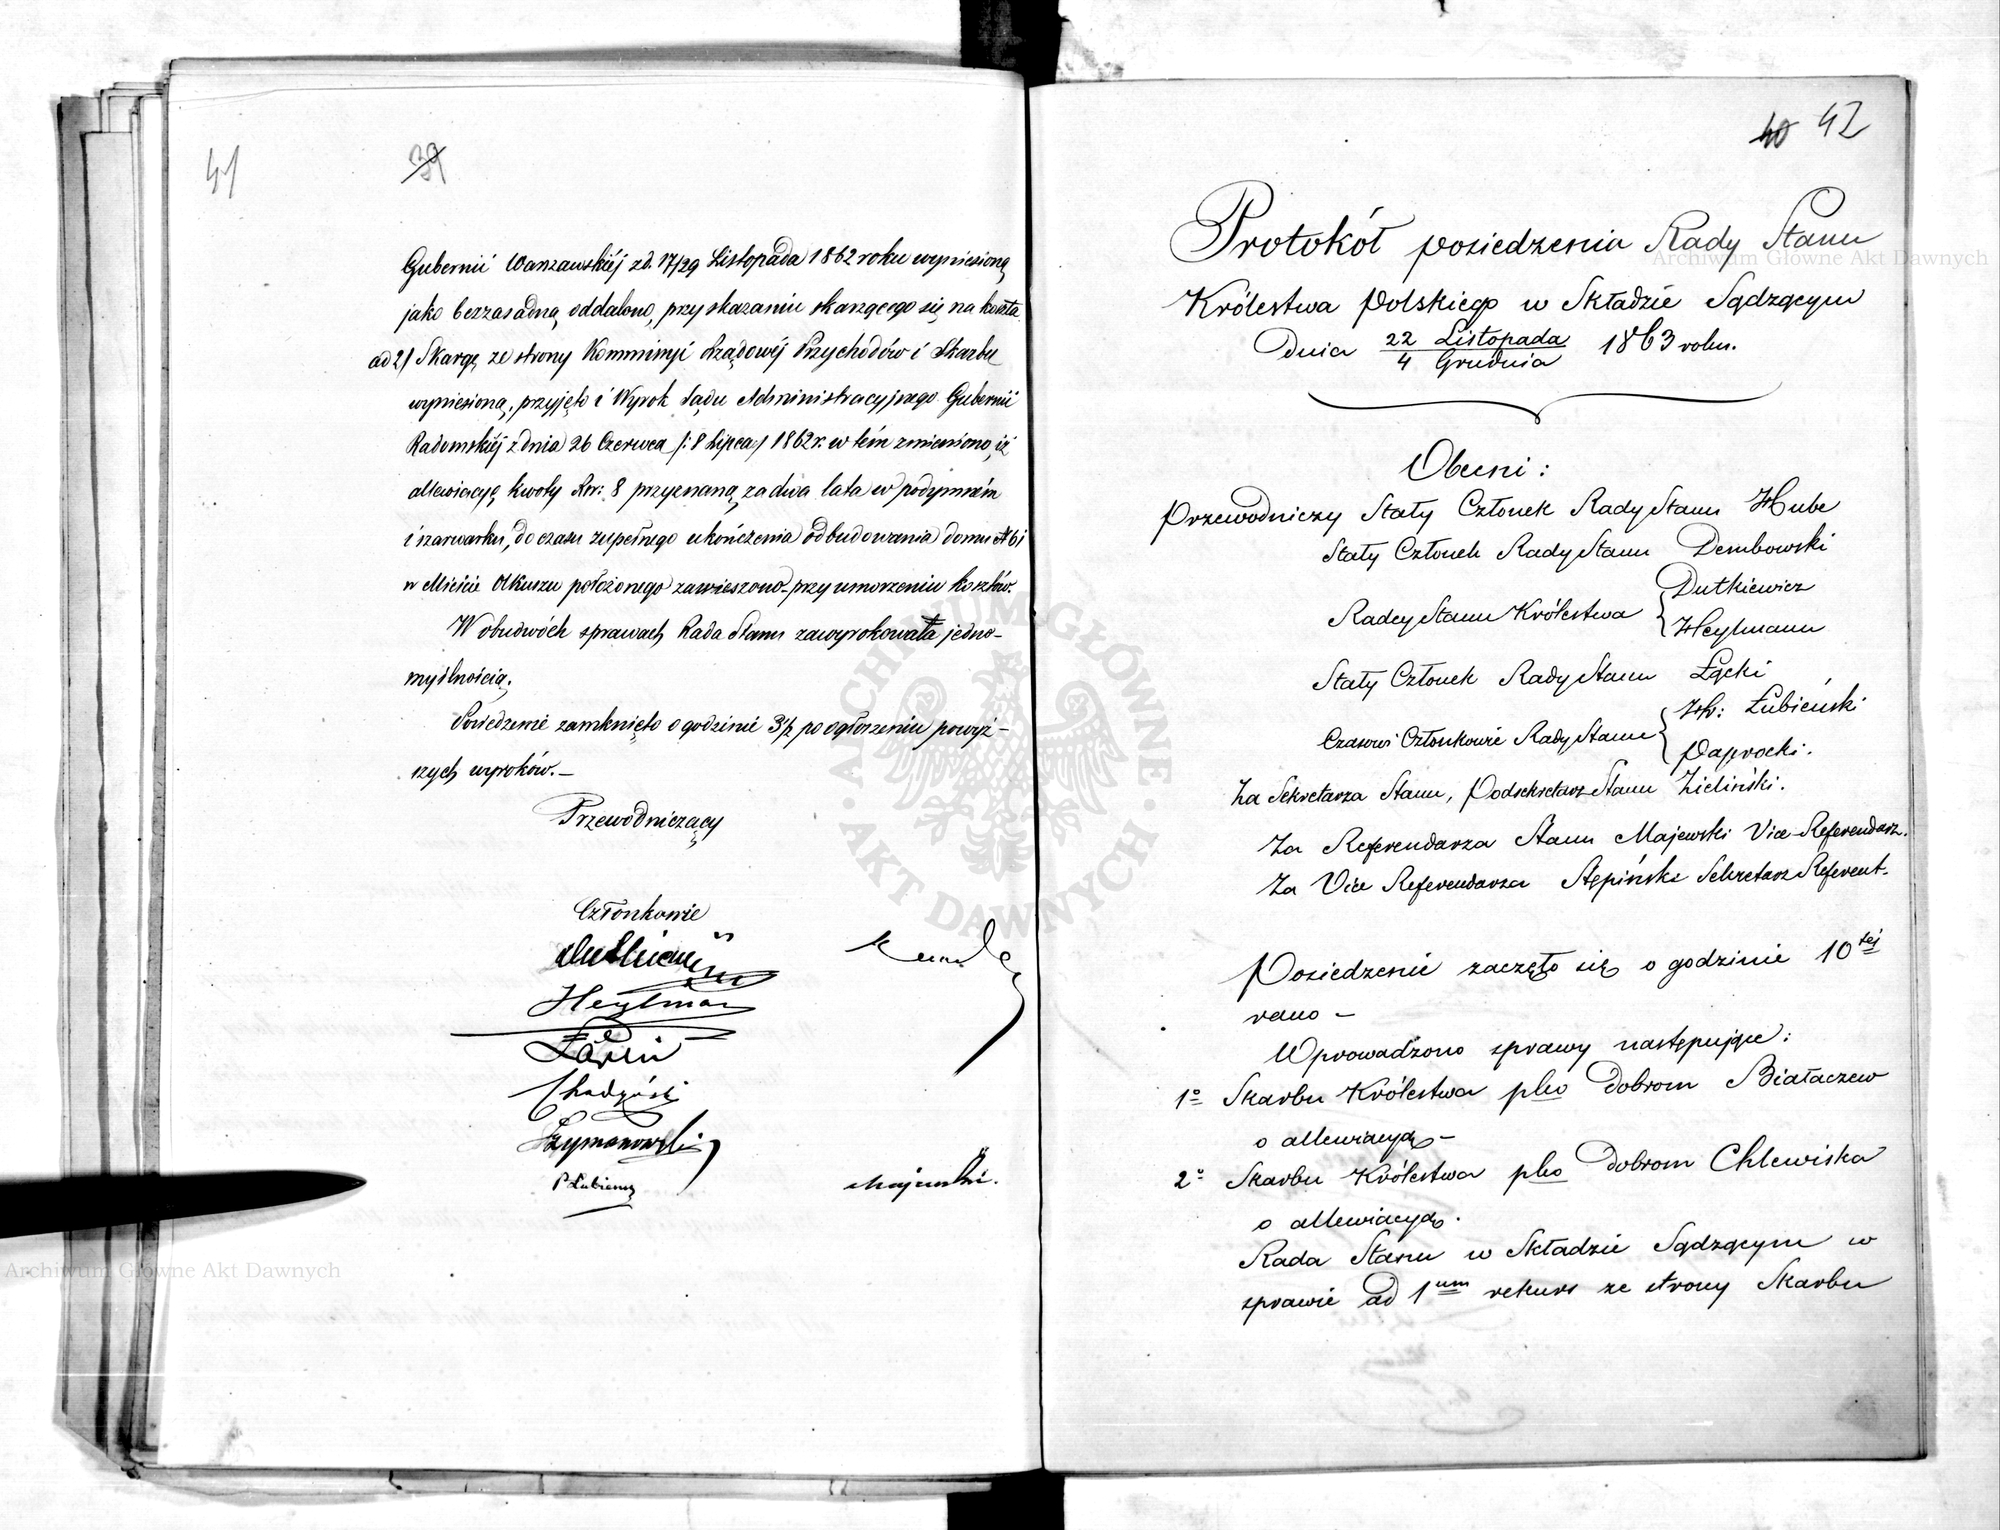 41
39
Gubernii Warszawskiéj z d. 17/29 Listopada 1862 roku wyniesioną
jako bezzasadną oddalono, przy skazaniu skarzącego się na koszta.
ad 2/ Skargę ze strony Kommissyi Rządowéj Przychodów i Skarbu
wyniesioną, przyjęto i Wyrok Sądu Administracyjnego Gubernii
Radomskiéj z dnia 26 Czerwca /:8 Lipca/ 1862 r. w tém zmieniono, iż
allewiacyą kwoty Rsr: 8 przyznaną za dwa lata w podymném
i szarwarku, do czasu zupełnego ukończenia odbudowania domu N 61
w Mieście Olkuszu położonego zawieszono przy umorzeniu kosztów.
W obudwóch sprawach Rada Stanu zawyrokowała jedno-
myślnością.
Posiedzenie zamknięto o godzinie 3½ po ogłoszeniu powyż-
szych wyroków.—
Przewodniczący
Członkowie
Dutkiewicz
Heylman
Łącki
Chądzyński
Szymanowski
P Łubieński
Majewski.
40 42
Protokół posiedzenia Rady Stanu
Królestwa Polskiego w Składzie Sądzącym
Dnia 22 Listopada / 4 Grudnia 1863 roku.
Obecni:
Przewodniczy Stały Członek Rady Stanu Hube
Stały Członek Rady Stanu Dembowski
Radcy Stanu Królestwa { Dutkiewicz
Heylmann
Stały Członek Rady Stanu Łącki
Czasowi Członkowie Rady Stanu { Hr: Łubieński
Paprocki.
Za Sekretarza Stanu, Podsekretarz Stanu Zieliński.
Za Referendarza Stanu Majewski Vice-Referendarz.
Za Vice Referendarza Stępiński Sekretarz Referent.
Posiedzenie zaczęto się o godzinie 10téj
rano –
Wprowadzono sprawy następujące:
1o Skarbu Królestwa pko Dobrom Białaczew
o allewiacyą –
2o Skarbu Królestwa pko Dobrom Chlewiska
o allewiacyą.
Rada Stanu w Składzie Sądzącym w
sprawie ad 1um rekurs ze strony Skarbu
Archiwum Główne Akt Dawnych
ARCHIWUM GŁÓWNE · AKT DAWNYCH ·
Archiwum Główne Akt Dawnych